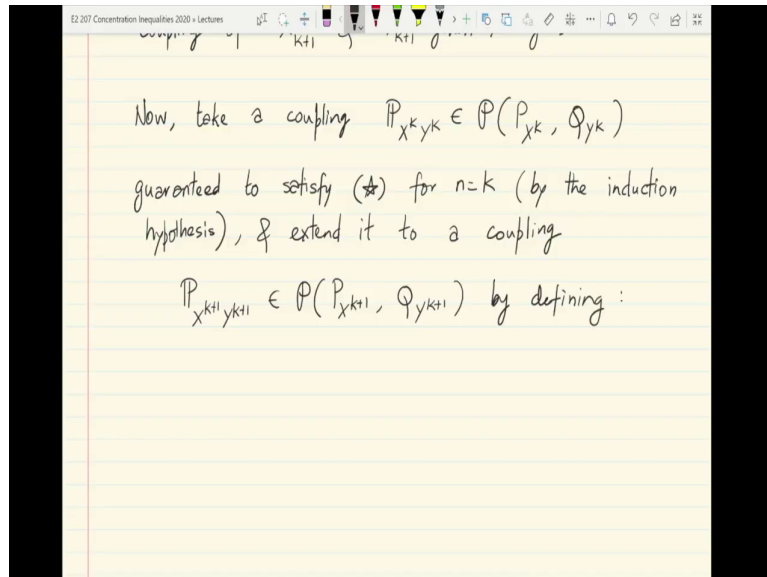 E2 207 Concentration Inequalities 2020 » Lectures
Now, take a coupling ℙ_{X^k Y^k} ∈ 𝒫(P_{X^k}, Q_{Y^k})
guaranteed to satisfy (☆) for n=k (by the induction
hypothesis), & extend it to a coupling
ℙ_{X^{k+1} Y^{k+1}} ∈ 𝒫(P_{X^{k+1}}, Q_{Y^{k+1}}) by defining :